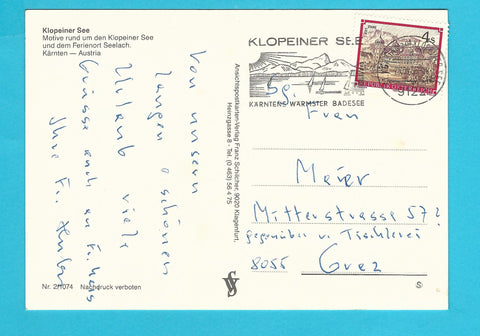 Klopeiner See
Motive rund um den Klopeiner See
und dem Ferienort Seelach.
Kärnten — Austria
Von unsern
langen + schönen
Urlaub viele
Grüsse auch an
Ihre Fr.
Nr. 2/1074 Nachdruck verboten
Ansichtspostkarten-Verlag Franz Schilcher, 9020 Klagenfurt,
Henzgasse 8 - Tel. (0 463) 56 4 75
KLOPEINER SEE
KÄRNTENS WARMSTER BADESEE
4 S
REPUBLIK ÖSTERREICH
9122
Sg.
Frau
Meier
Mittenstrasse 57?
gegenüber v. Tischlerei
8055 Graz
S